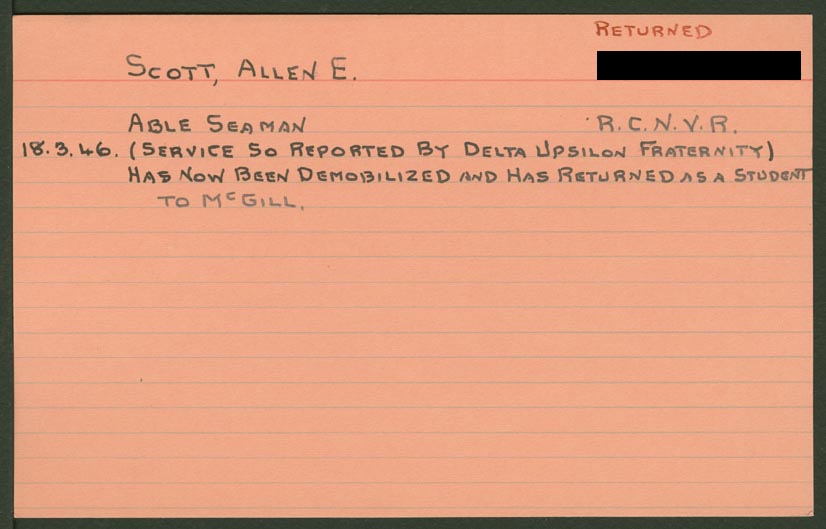 RETURNED
SCOTT, ALLEN E.
ABLE SEAMAN R.C.N.V.R.
18.3.46. (SERVICE SO REPORTED BY DELTA UPSILON FRATERNITY)
HAS NOW BEEN DEMOBILIZED AND HAS RETURNED AS A STUDENT
TO McGILL.